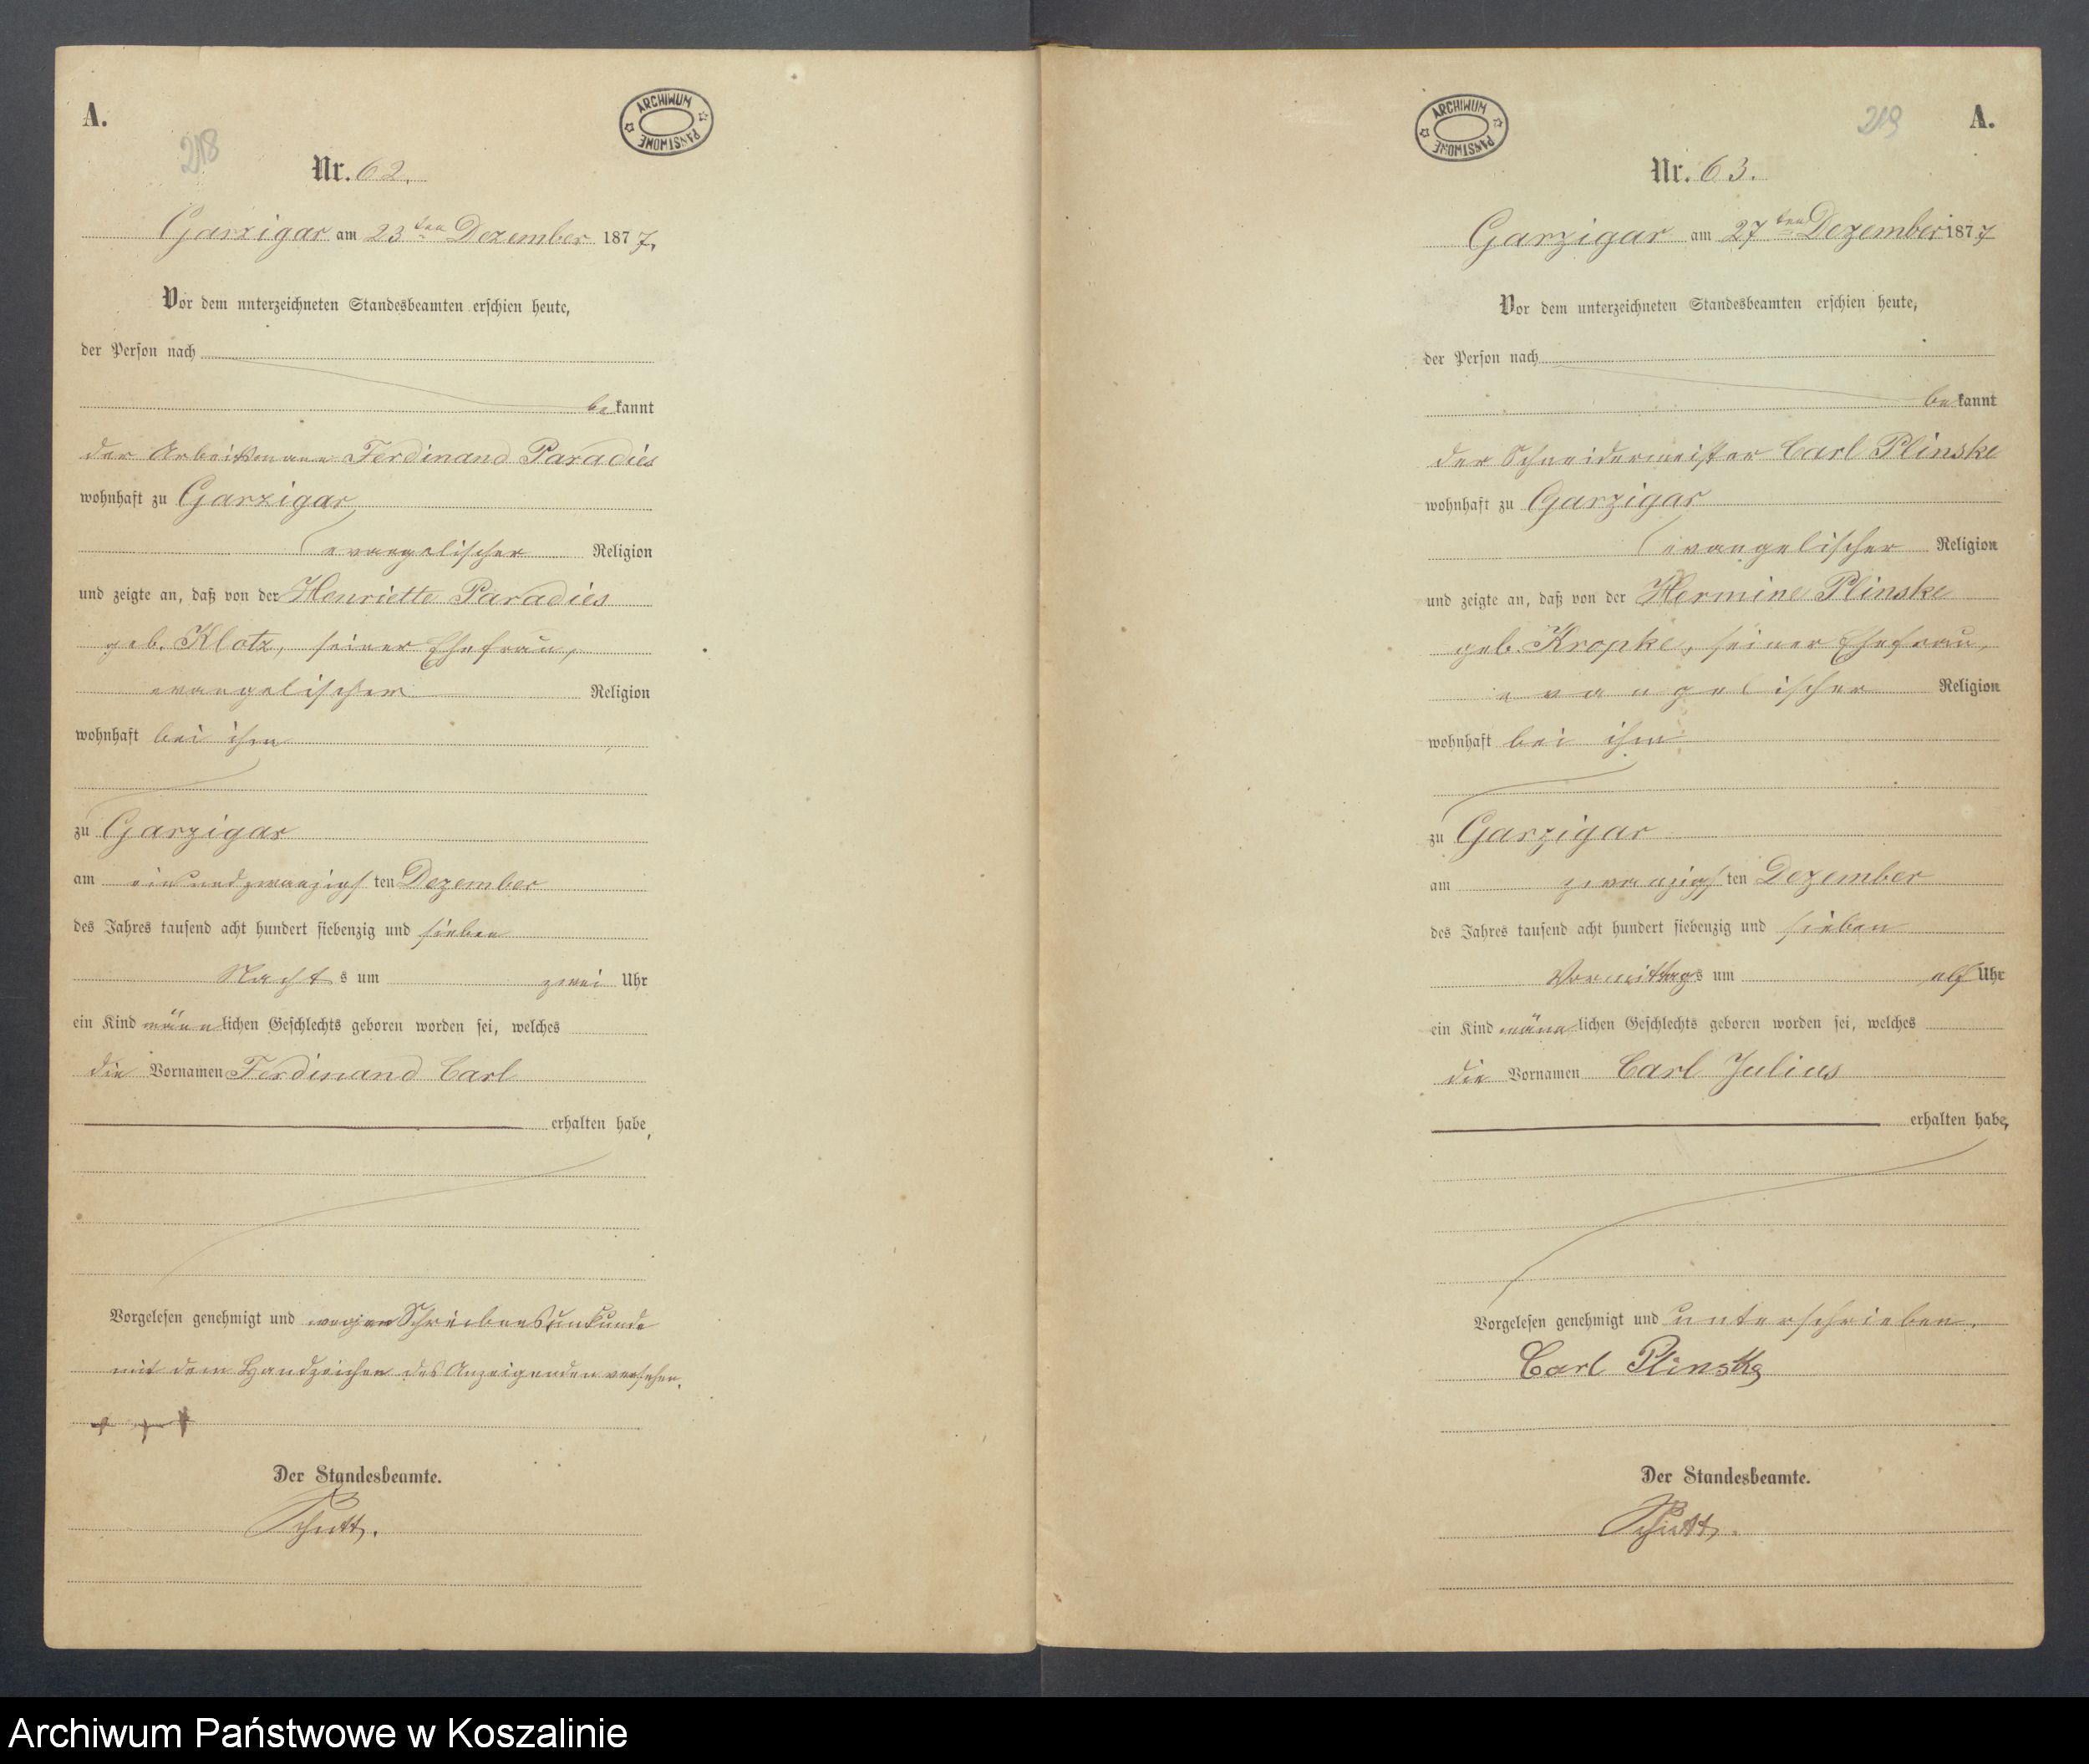 A.
218
ARCHIWUM PAŃSTWOWE
Nr. 62.
Garzigar am 23ten Dezember 1877,
Vor dem unterzeichneten Standesbeamten erschien heute,
der Person nach
bekannt
der Arbeitsmann Ferdinand Paradies
wohnhaft zu Garzigar,
evangelischer Religion
und zeigte an, daß von der Henriette Paradies
geb. Klotz, seiner Ehefrau,
evangelischer Religion
wohnhaft bei ihm
zu Garzigar
am einundzwanzigsten Dezember
des Jahres tausend acht hundert siebenzig und sieben
Nachts um zwei Uhr
ein Kind männlichen Geschlechts geboren worden sei, welches
die Vornamen Ferdinand Carl
erhalten habe,
Vorgelesen genehmigt und wegen Schreibensunkunde
mit dem Handzeichen des Anzeigenden versehen.
+ + +
Der Standesbeamte.
A.
219
ARCHIWUM PAŃSTWOWE
Nr. 63.
Garzigar am 27ten Dezember 1877
Vor dem unterzeichneten Standesbeamten erschien heute,
der Person nach
bekannt
der Schneidermeister Carl Plinske
wohnhaft zu Garzigar
evangelischer Religion
und zeigte an, daß von der Hermine Plinske
geb. Kropke, seiner Ehefrau,
evangelischer Religion
wohnhaft bei ihm
zu Garzigar
am zwanzigsten Dezember
des Jahres tausend acht hundert siebenzig und sieben
Vormittags um elf Uhr
ein Kind männlichen Geschlechts geboren worden sei, welches
die Vornamen Carl Julius
erhalten habe,
Vorgelesen genehmigt und unterschrieben.
Carl Plinske
Der Standesbeamte.
Archiwum Państwowe w Koszalinie